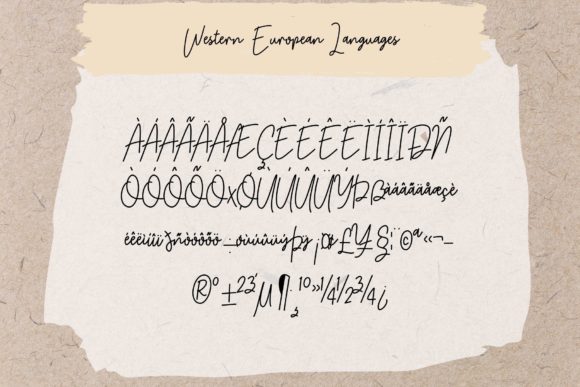 Western European Languages
ÀÁÂÃÄÅÆÇÈÉÊËÌÍÎÏÐÑ
ÒÓÔÕÖxØÙÚÛÜÝÞßàáâãäåæçè
éêëìíîïðñòóôõö÷øùúûüýþÿ¡¢¤£¥§¦¨©ª«¬–
®º±23´µ¶¸10»¼½¾¿